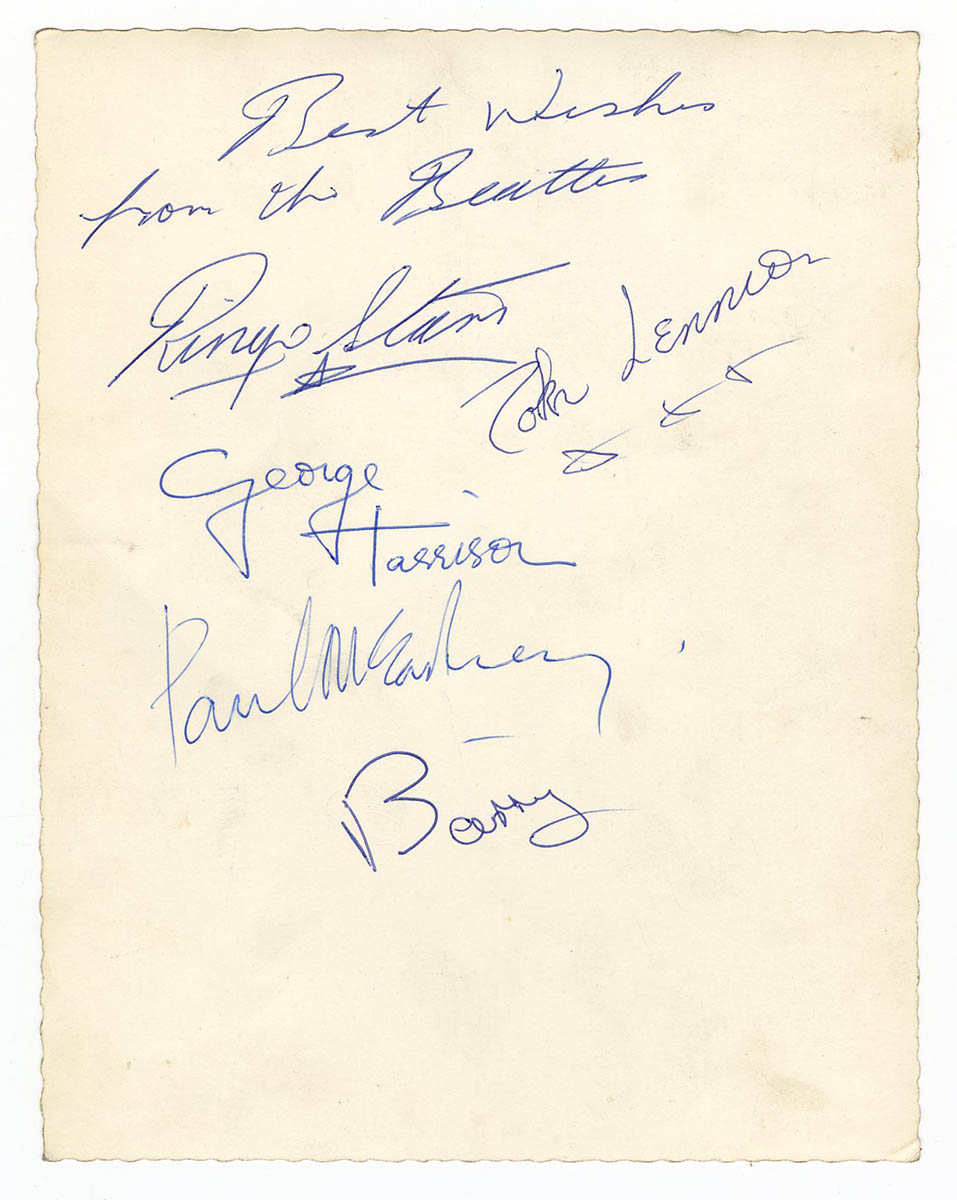 Best Wishes
from the Beatles
Ringo Starr
John Lennon
x x x
George
Harrison
Paul McCartney
Barry